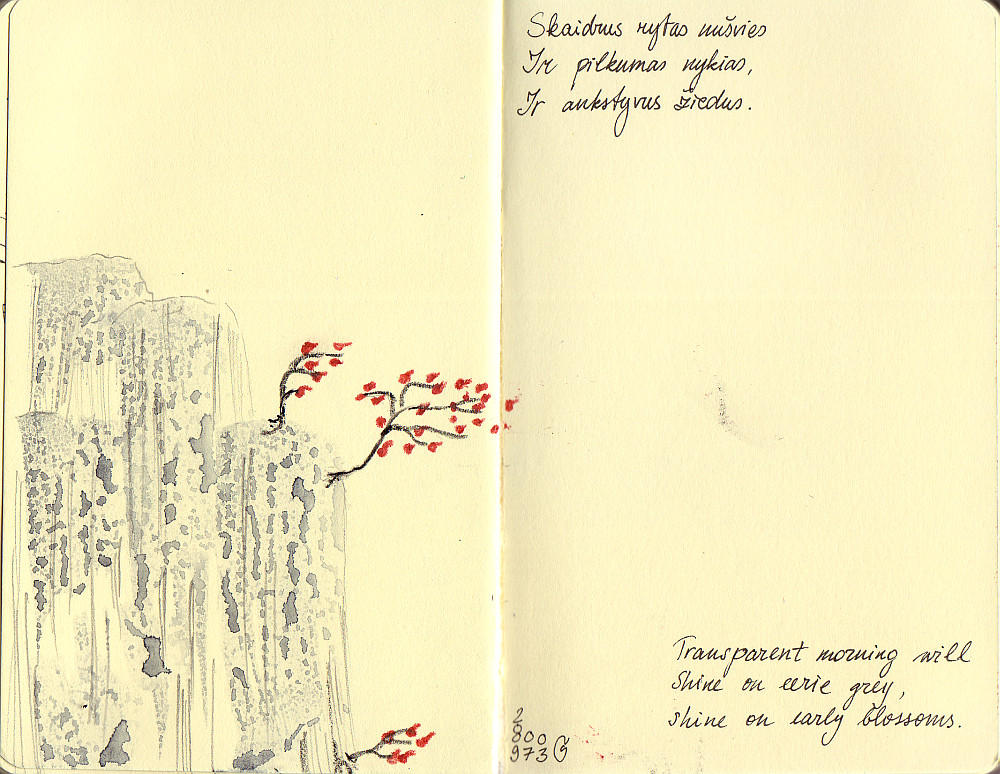 Skaidrus rytas nušvies
Ir pilkumas nykias,
Ir ankstyvus žiedus.
Transparent morning will
Shine on eerie grey,
shine on early blossoms.
2
800
973